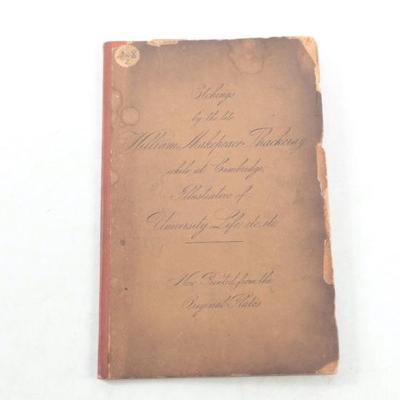 Etchings
by the late
William Makepeace Thackeray
while at Cambridge,
Illustrative of
University Life, etc. etc.
Now Printed from the
Original Plates